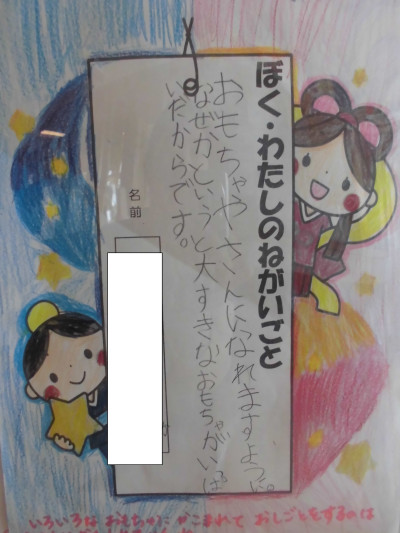 ぼく・わたしのねがいごと
おもちゃやさんになれますように。
なぜかというと大すきなおもちゃがいっぱ
いだからです。
名前
いろいろな おもちゃに かこまれて おしごとをするのは